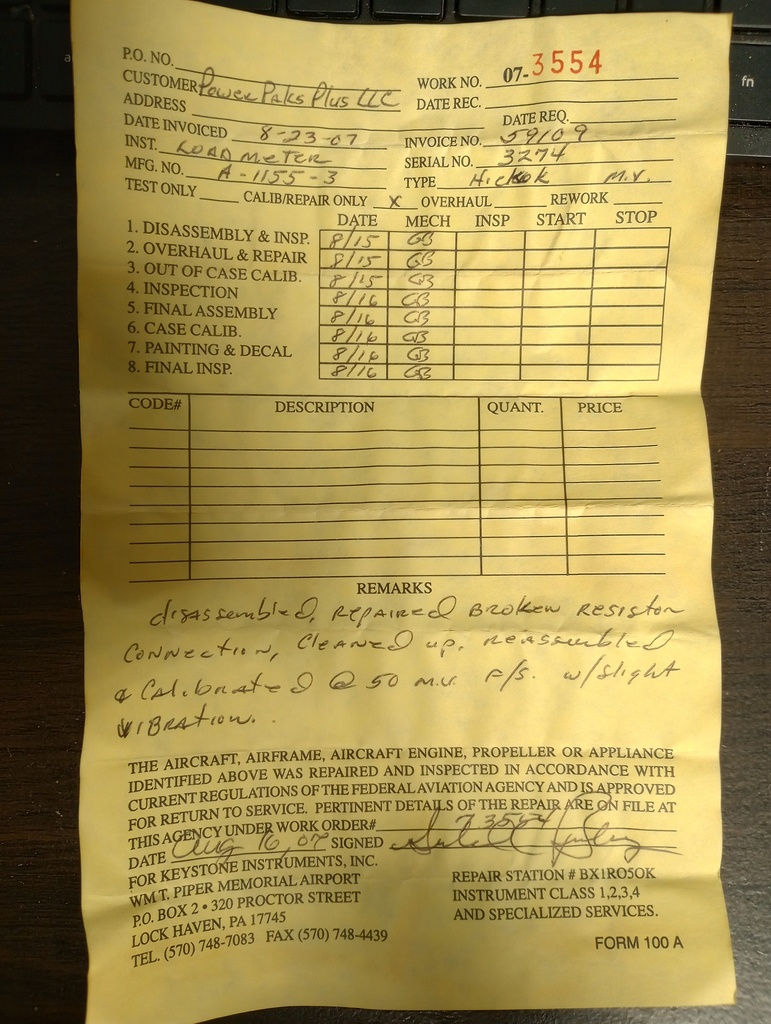 P.O. NO.
WORK NO. 07-3554
CUSTOMER Power Paks Plus LLC
DATE REC.
ADDRESS
DATE REQ.
DATE INVOICED 8-23-07
INVOICE NO. 59109
INST. LOAD METER
SERIAL NO. 3274
MFG. NO. A-1155-3
TYPE Hickok M.V.
TEST ONLY CALIB/REPAIR ONLY X OVERHAUL REWORK
DATE MECH INSP START STOP
1. DISASSEMBLY & INSP. 8/15 GB
2. OVERHAUL & REPAIR 8/15 GB
3. OUT OF CASE CALIB. 8/15 GB
4. INSPECTION 8/16 GB
5. FINAL ASSEMBLY 8/16 GB
6. CASE CALIB. 8/16 GB
7. PAINTING & DECAL 8/16 GB
8. FINAL INSP. 8/16 GB
CODE# DESCRIPTION QUANT. PRICE
REMARKS
disassembled, REPAIRED BROKEN RESISTOR
CONNECTION, CLEANED up, REASSEMBLED
& CALIBRATED @ 50 M.V. F/S. w/slight
VIBRATION.
THE AIRCRAFT, AIRFRAME, AIRCRAFT ENGINE, PROPELLER OR APPLIANCE
IDENTIFIED ABOVE WAS REPAIRED AND INSPECTED IN ACCORDANCE WITH
CURRENT REGULATIONS OF THE FEDERAL AVIATION AGENCY AND IS APPROVED
FOR RETURN TO SERVICE. PERTINENT DETAILS OF THE REPAIR ARE ON FILE AT
THIS AGENCY UNDER WORK ORDER# 73554
DATE Aug 16, 07 SIGNED
FOR KEYSTONE INSTRUMENTS, INC.
WM T. PIPER MEMORIAL AIRPORT
P.O. BOX 2 • 320 PROCTOR STREET
LOCK HAVEN, PA 17745
TEL. (570) 748-7083 FAX (570) 748-4439
REPAIR STATION # BX1RO5OK
INSTRUMENT CLASS 1,2,3,4
AND SPECIALIZED SERVICES.
FORM 100 A
fn